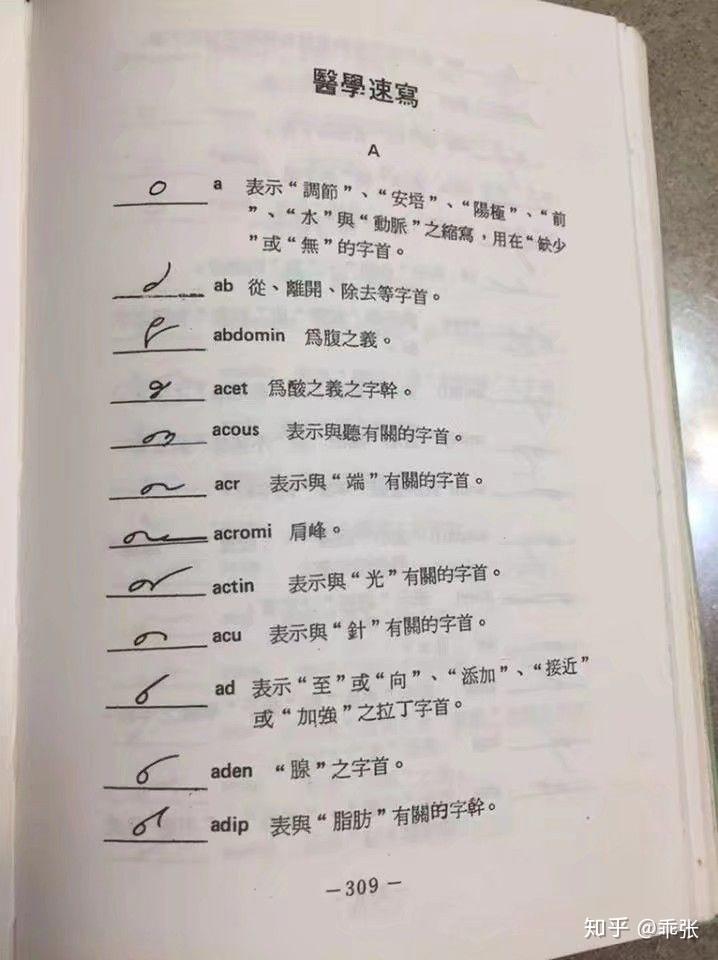 醫學速寫
A
a 表示“調節”、“安培”、“陽極”、“前
”、“水”與“動脈”之縮寫，用在“缺少
”或“無”的字首。
ab 從、離開、除去等字首。
abdomin 爲腹之義。
acet 爲酸之義之字幹。
acous 表示與聽有關的字首。
acr 表示與“端”有關的字首。
acromi 肩峰。
actin 表示與“光”有關的字首。
acu 表示與“針”有關的字首。
ad 表示“至”或“向”、“添加”、“接近”
或“加強”之拉丁字首。
aden “腺”之字首。
adip 表與“脂肪”有關的字幹。
—309—
知乎 @乖张